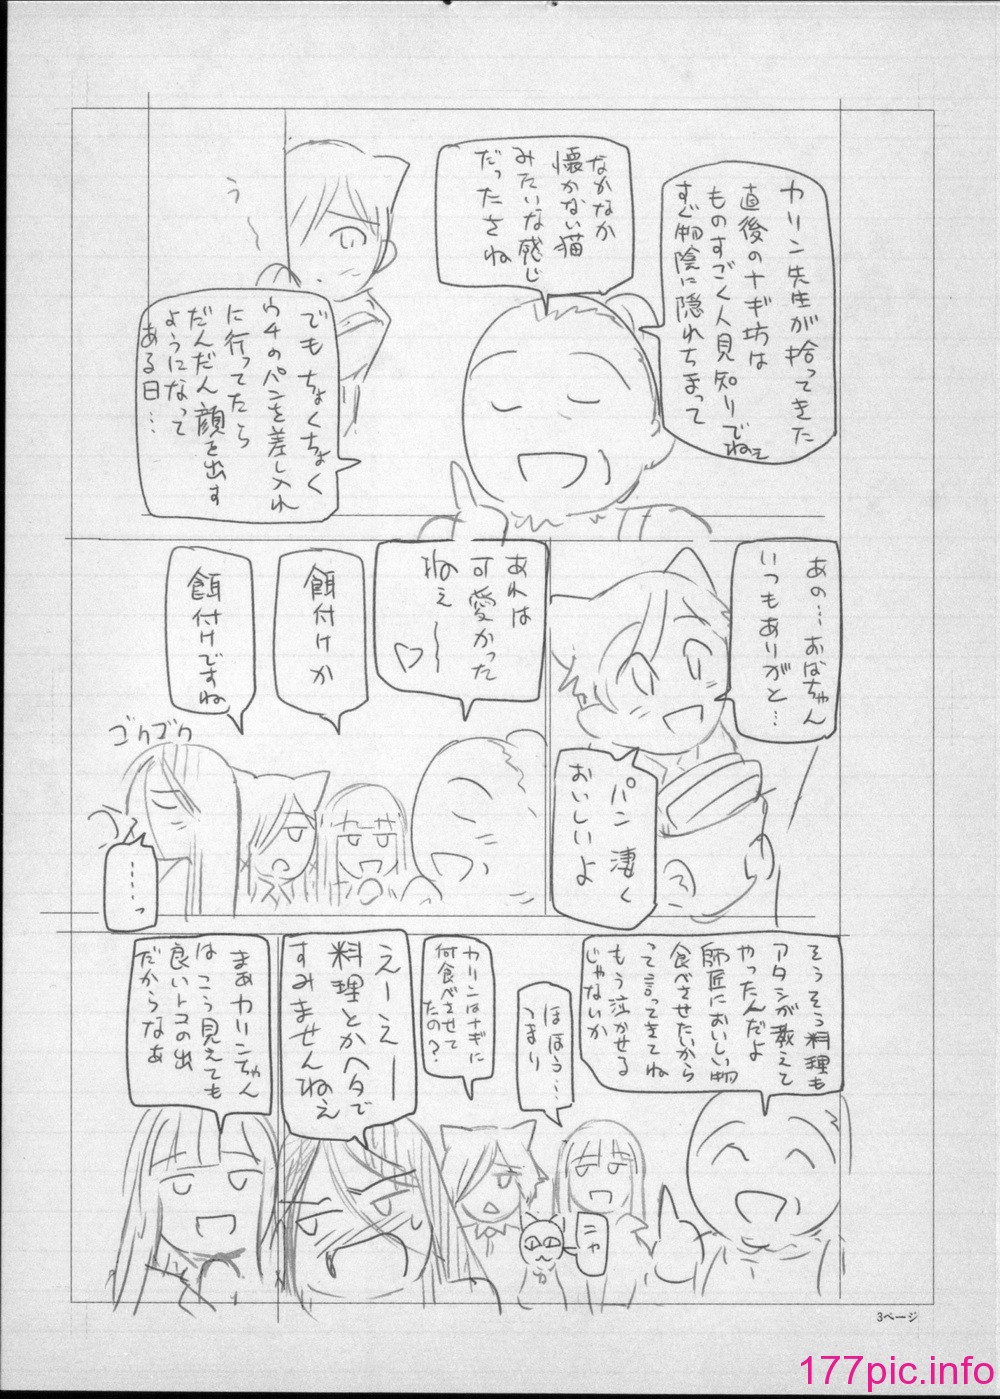 カリン先生が拾ってきた
直後のナギ坊は
ものすごく人見知りでねぇ
すぐ物陰に隠れちまって
なかなか
懐かない猫
みたいな感じ
だったさね
う
でもちょくちょく
ウチのパンを差し入れ
に行ってたら
だんだん顔を出す
ようになって
ある日…
あの…おばちゃん
いつもありがと…
パン凄く
おいしいよ
あれは
可愛かった
ねぇ~
♡
餌付けか
餌付けですね
ゴクゴク
……っ
そうそう料理も
アタシが教えて
やったんだよ
師匠においしい物
食べさせたいから
って言ってきてね
もう泣かせる
じゃないか
ほほう…
つまり
カリンはナギに
何食べさせて
たの?
ニャ
えーえー
料理とかヘタで
すみませんねえ
まぁカリンちゃん
はこう見えても
良いトコの出
だからなぁ
3ページ
177pic.info